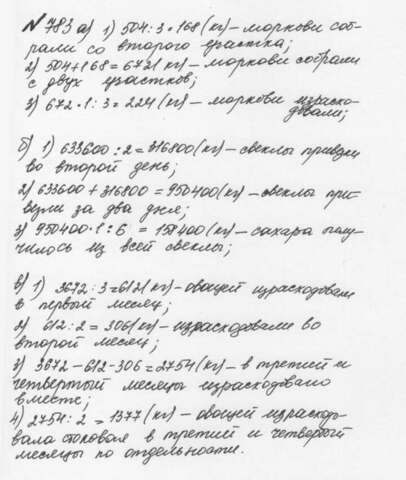 № 783 а) 1) 504 : 3 = 168 (кг) – моркови соб-
рали со второго участка;
2) 504 + 168 = 672 (кг) – моркови собрали
с двух участков;
3) 672 · 1 : 3 = 224 (кг) – моркови израсхо-
довали;
б) 1) 633600 : 2 = 316800 (кг) – свеклы привезли
во второй день;
2) 633600 + 316800 = 950400 (кг) – свеклы при-
везли за два дня;
3) 950400 · 1 : 6 = 158400 (кг) – сахара полу-
чилось из всей свеклы;
в) 1) 3672 : 3 = 612 (кг) – овощей израсходовали
в первый месяц;
2) 612 : 2 = 306 (кг) – израсходовали во
второй месяц;
3) 3672 – 612 – 306 = 2754 (кг) – в третий и
четвертый месяцы израсходовано
вместе;
4) 2754 : 2 = 1377 (кг) – овощей израсходо-
вала столовая в третий и четвертый
месяцы по отдельности.